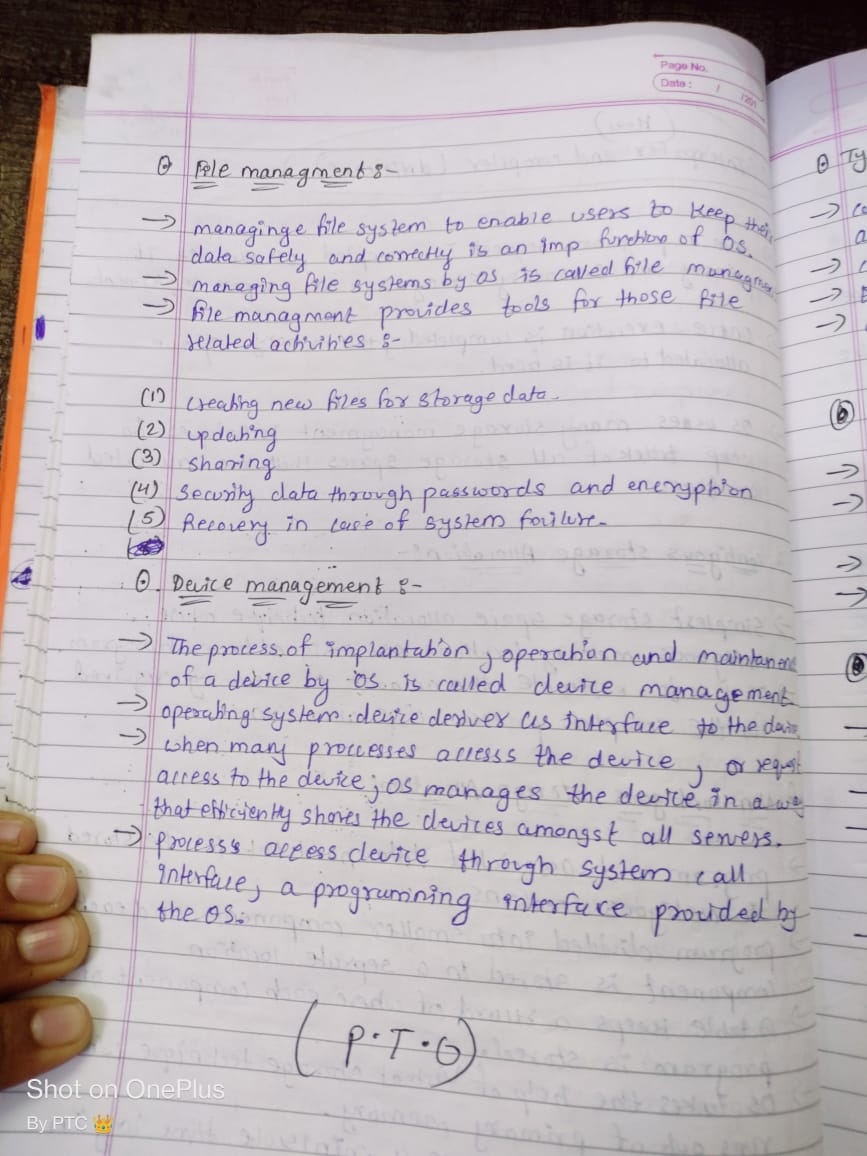 Page No.
Date : / /201
⊙ File managment :-
→ managinge file system to enable users to keep their
data safely and correctly is an imp function of OS.
→ managing file systems by os is called file managmen
→ file managment provides tools for those file
related activities :-
(1) creating new files for storage data.
(2) updating
(3) sharing
(4) security data through passwords and encryption
(5) Recovery in case of system failure.
⊙. Device management :-
→ The process of implantation, operation and maintanend
of a device by OS is called device management
→ operating system device deriver as interface to the
→ when many proccesses accesss the device, or request
access to the device; OS manages the device in a way
that efficiently shares the devices amongst all servers.
→ processs access device through system call
interface, a programming interface provided by
the OS.
(P.T.O)
⊙ Ty
→ co
a
→
→
→
(b)
→
→
→
→
Shot on OnePlus
By PTC 👑